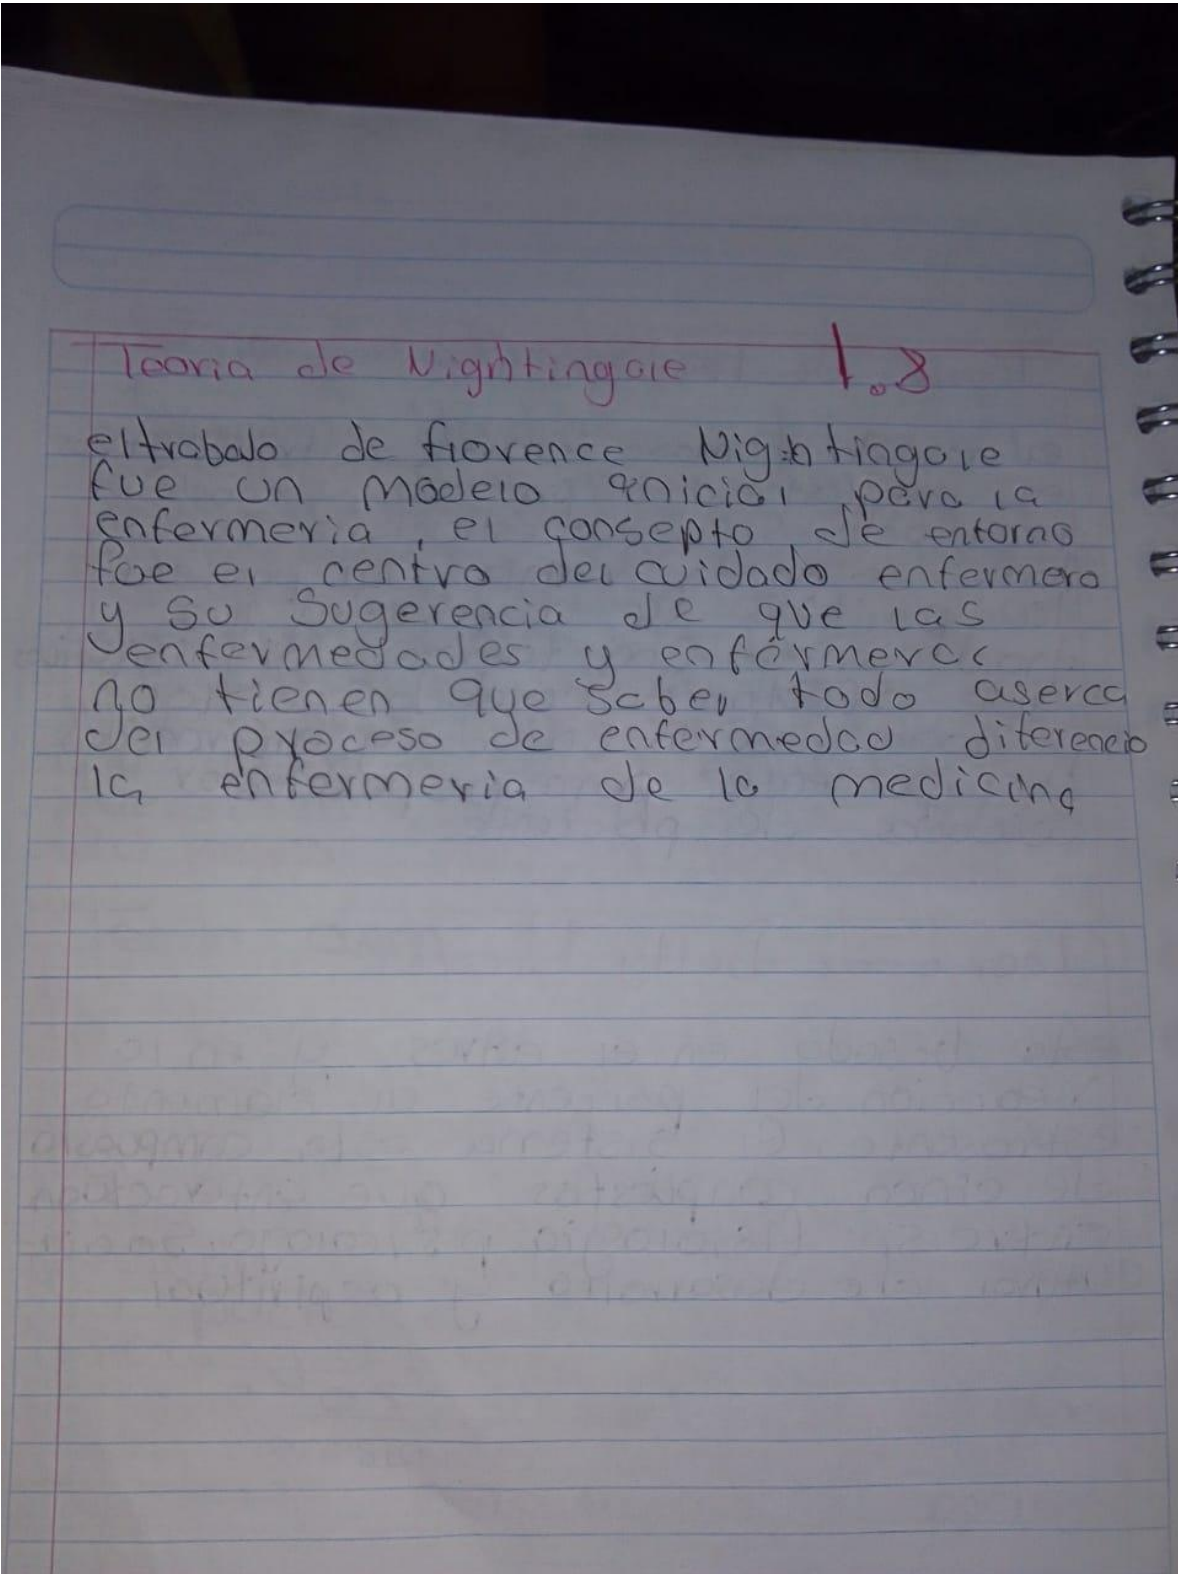 Teoria de Nightingale 1.8
el trabajo de florence Nightingale
fue un modelo inicial para la
enfermeria, el consepto de entorno
fue el centro del cuidado enfermero
y su sugerencia de que las
enfermedades y enfermeras
no tienen que saber todo aserca
del proceso de enfermedad diferencio
la enfermeria de la medicina